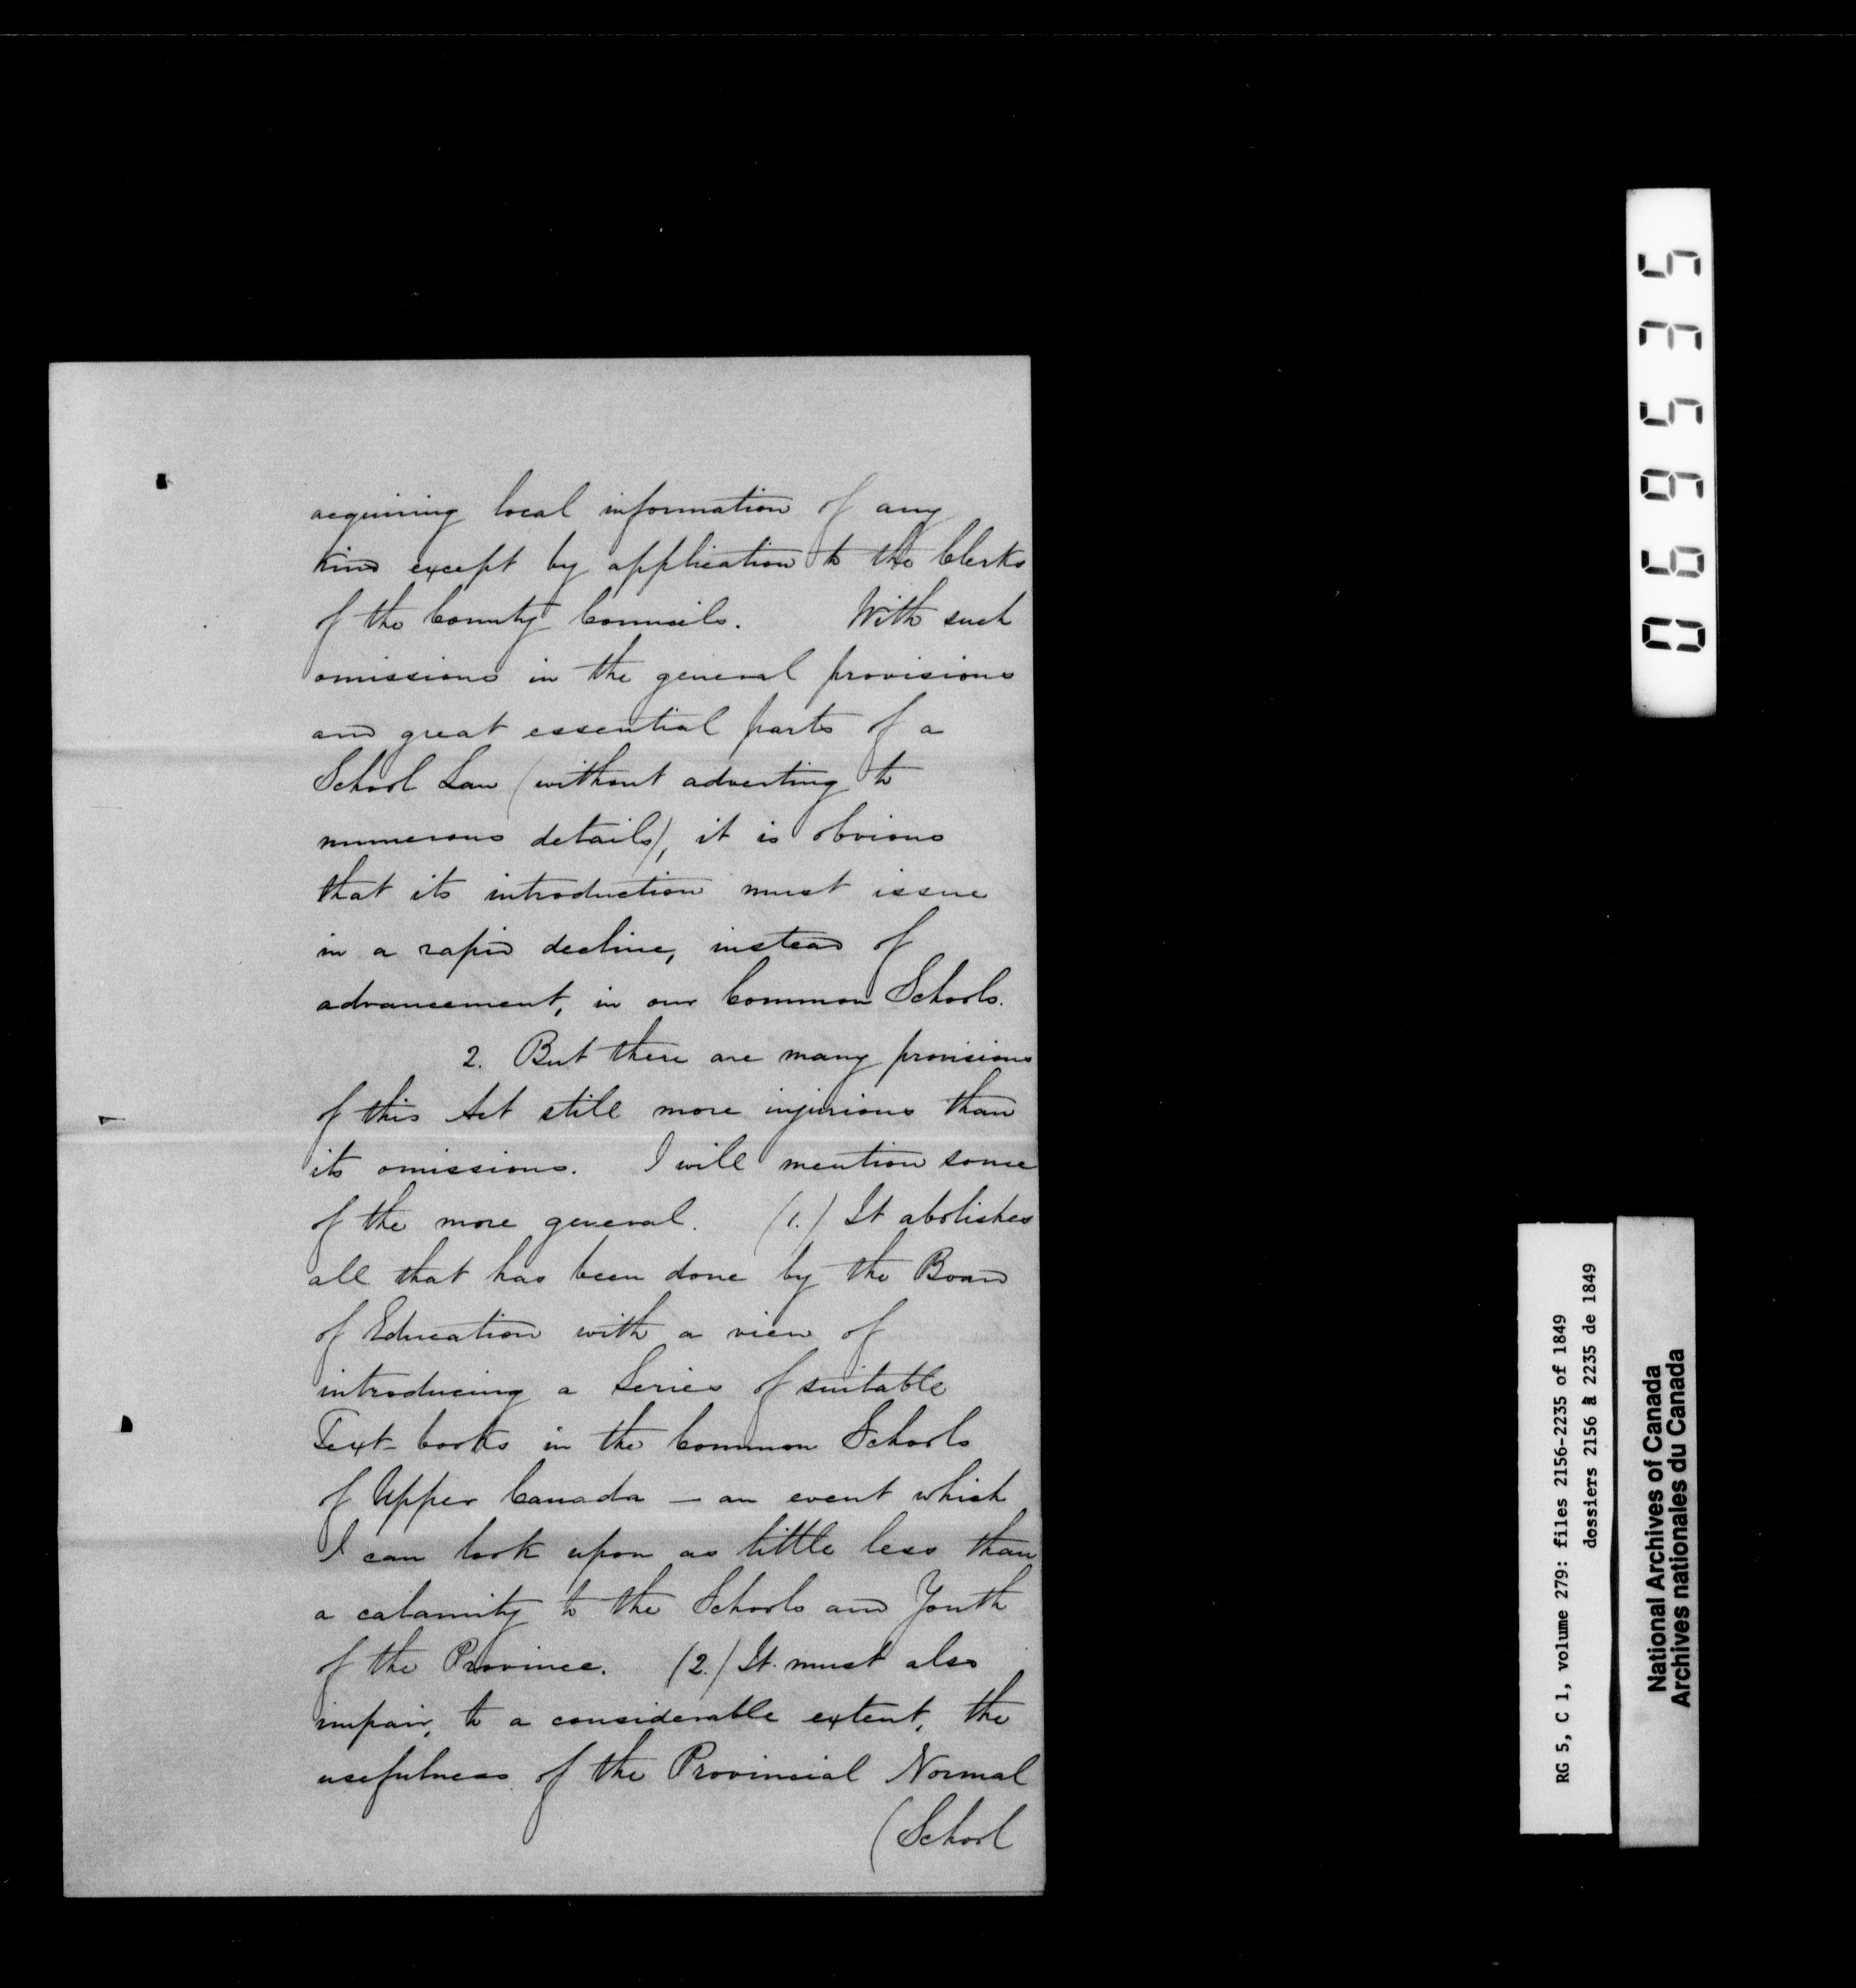 acquiring local information of any
kind except by application to the Clerks
of the County Councils. With such
omissions in the general provisions
and great essential parts of a
School Law (without adverting to
numerous details), it is obvious
that its introduction must issue
in a rapid decline, instead of
advancement, in our Common Schools.
2. But there are many provisions
of this Act still more injurious than
its omissions. I will mention some
of the more general. (1.) It abolishes
all that has been done by the Board
of Education with a view of
introducing a Series of suitable
Text-books in the Common Schools
of Upper Canada — an event which
I can look upon as little less than
a calamity to the Schools and Youth
of the Province. (2.) It must also
impair, to a considerable extent, the
usefulness of the Provincial Normal
(School
069535
RG 5, C 1, volume 279: files 2156-2235 of 1849
dossiers 2156 à 2235 de 1849
National Archives of Canada
Archives nationales du Canada